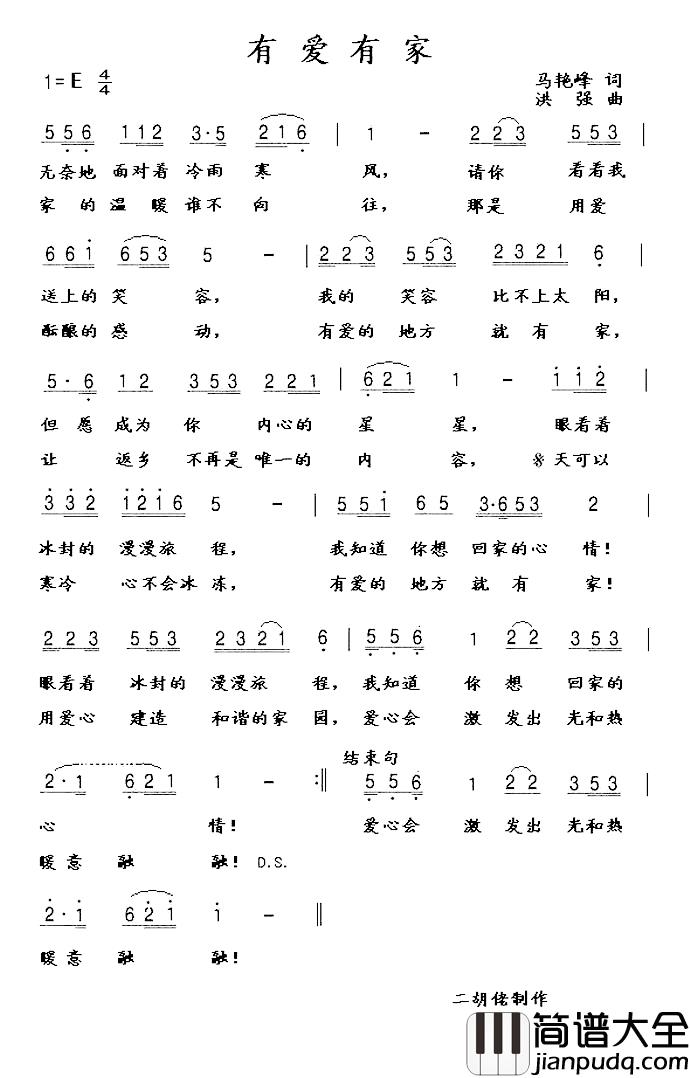 有爱有家
1=E 4/4 马艳峰 词
洪 强 曲
5 5 6 1 1 2 3·5 2 1 6 | 1 - 2 2 3 5 5 3 |
无奈地 面对着 冷雨 寒 风, 请你 看看我
家的温 暖谁不 向 往, 那是 用爱
6 6 1 6 5 3 5 - | 2 2 3 5 5 3 2 3 2 1 6 |
送上的 笑 容, 我的 笑容 比不上太 阳,
酝酿的 感 动, 有爱的 地方 就有 家,
5·6 1 2 3 5 5 3 2 2 1 | 6 2 1 1 - 1 1 2 |
但愿 成为 你 内心的 星 星, 眼看着
让 返乡 不再是 唯一的 内 容, 天可以
3 3 2 1 2 1 6 5 - | 5 5 1 6 5 3·6 5 3 2 |
冰封的 漫漫旅 程, 我知道 你想 回家的心 情!
寒冷 心不会冰 冻, 有爱的 地方 就有 家!
2 2 3 5 5 3 2 3 2 1 6 | 5 5 6 1 2 2 3 5 3 |
眼看着 冰封的 漫漫旅 程, 我知道 你 想 回家的
用爱心 建造 和谐的家 园, 爱心会 激 发出 光和热
结束句
2·1 6 2 1 1 - :|| 5 5 6 1 2 2 3 5 3 |
心 情! 爱心会 激 发出 光和热
暖意 融 融! D.S.
2·1 6 2 1 1 - ||
暖意 融 融!
二胡佬制作
简谱大全
jianpudq.com